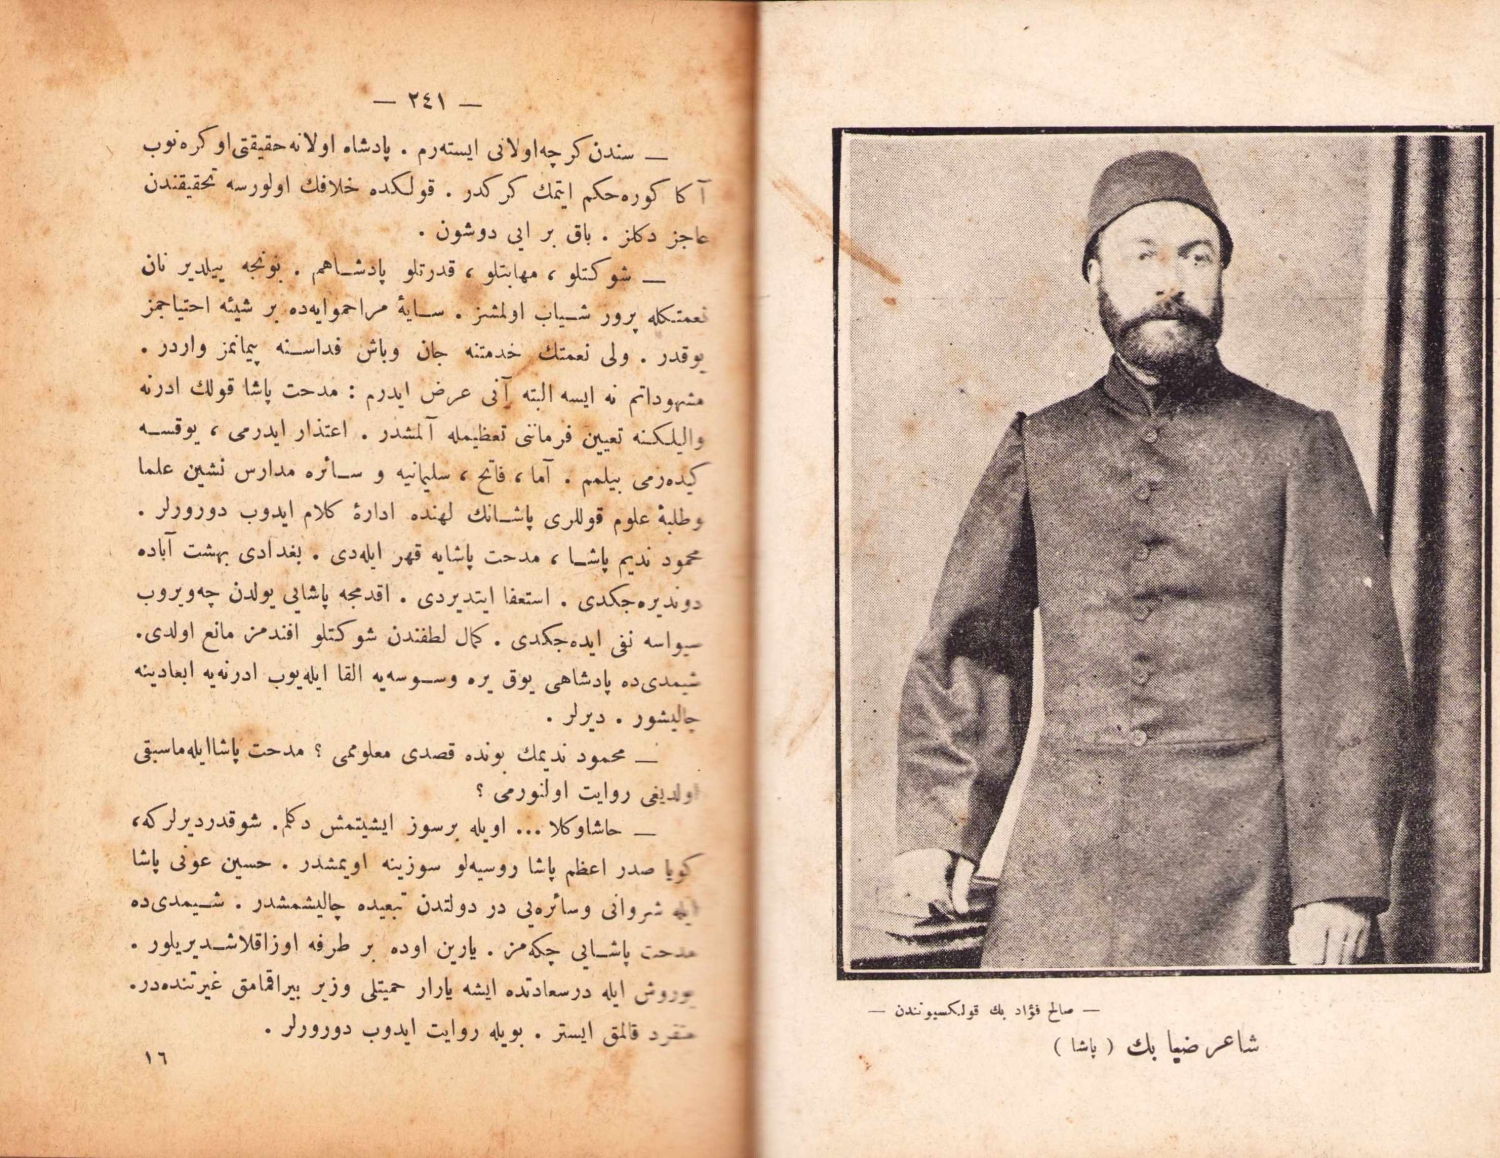 — ٢٤١ —
— سندن كرچه‌اولانی ایسته‌رم . پادشاه اولانه‌حقیقتی‌اوكره‌نوب
آكا كوره‌حكم ایتمك كركدر . قولكده خلافك اولورسه تحقیقندن
عاجز دكلز . باق بر ایی دوشون .
— شوكتلو ، مهابتلو ، قدرتلو پادشاهم . بونجه ییلدیر نان
نعمتكله پرور شیاب اولمشز . سایهٔ مراحموایه‌ده بر شیئه احتیاجمز
یوقدر . ولی نعمتك خدمتنه جان وباش فداسنه پیمانمز واردر .
مشهوداتم نه ایسه البته آنی عرض ایدرم : مدحت پاشا قولك ادرنه
والیلكنه تعیین فرماننی تعظیمله آلمشدر . اعتذار ایدرمی ، یوقسه
كیده‌رمی بیلمم . آما ، فاتح ، سلیمانیه و سائره مدارس نشین علما
وطلبهٔ علوم قوللری پاشانك لهنده ادارهٔ كلام ایدوب دورورلر .
محمود ندیم پاشا ، مدحت پاشایه قهر ایله‌دی . بغدادی بهشت آباده
دوندیره‌جكدی . استعفا ایتدیردی . اقدمجه پاشایی یولدن چه‌ویروب
سیواسه نفی ایده‌جكدی . كمال لطفندن شوكتلو افندمز مانع اولدی.
شیمدی‌ده پادشاهی یوق یره وسوسه‌یه القا ایله‌یوب ادرنه‌یه ابعادینه
چالیشور . دیرلر .
— محمود ندیمك بونده قصدی معلوممی ؟ مدحت پاشاایله‌ماسبقی
اولدیغی روایت اولنورمی ؟
— حاشاوكلا ... اویله برسوز ایشیتمش دكلم. شوقدردیرلركه،
كویا صدر اعظم پاشا روسیه‌لو سوزینه اویمشدر . حسین عونی پاشا
ایله شروانی وسائره‌یی در دولتدن تبعیده چالیشمشدر . شیمدی‌ده
مدحت پاشایی چكه‌مز . یارین اوده بر طرفه اوزاقلاشدیریلور .
یوروش ایله درسعادتده ایشه یارار حمیتلی وزیر بیراقمامق غیرتنده‌در.
منفرد قالمق ایستر . بویله روایت ایدوب دورورلر .
١٦
— صالح فؤاد بك قولكسیونندن —
شاعر ضیا بك ( پاشا )